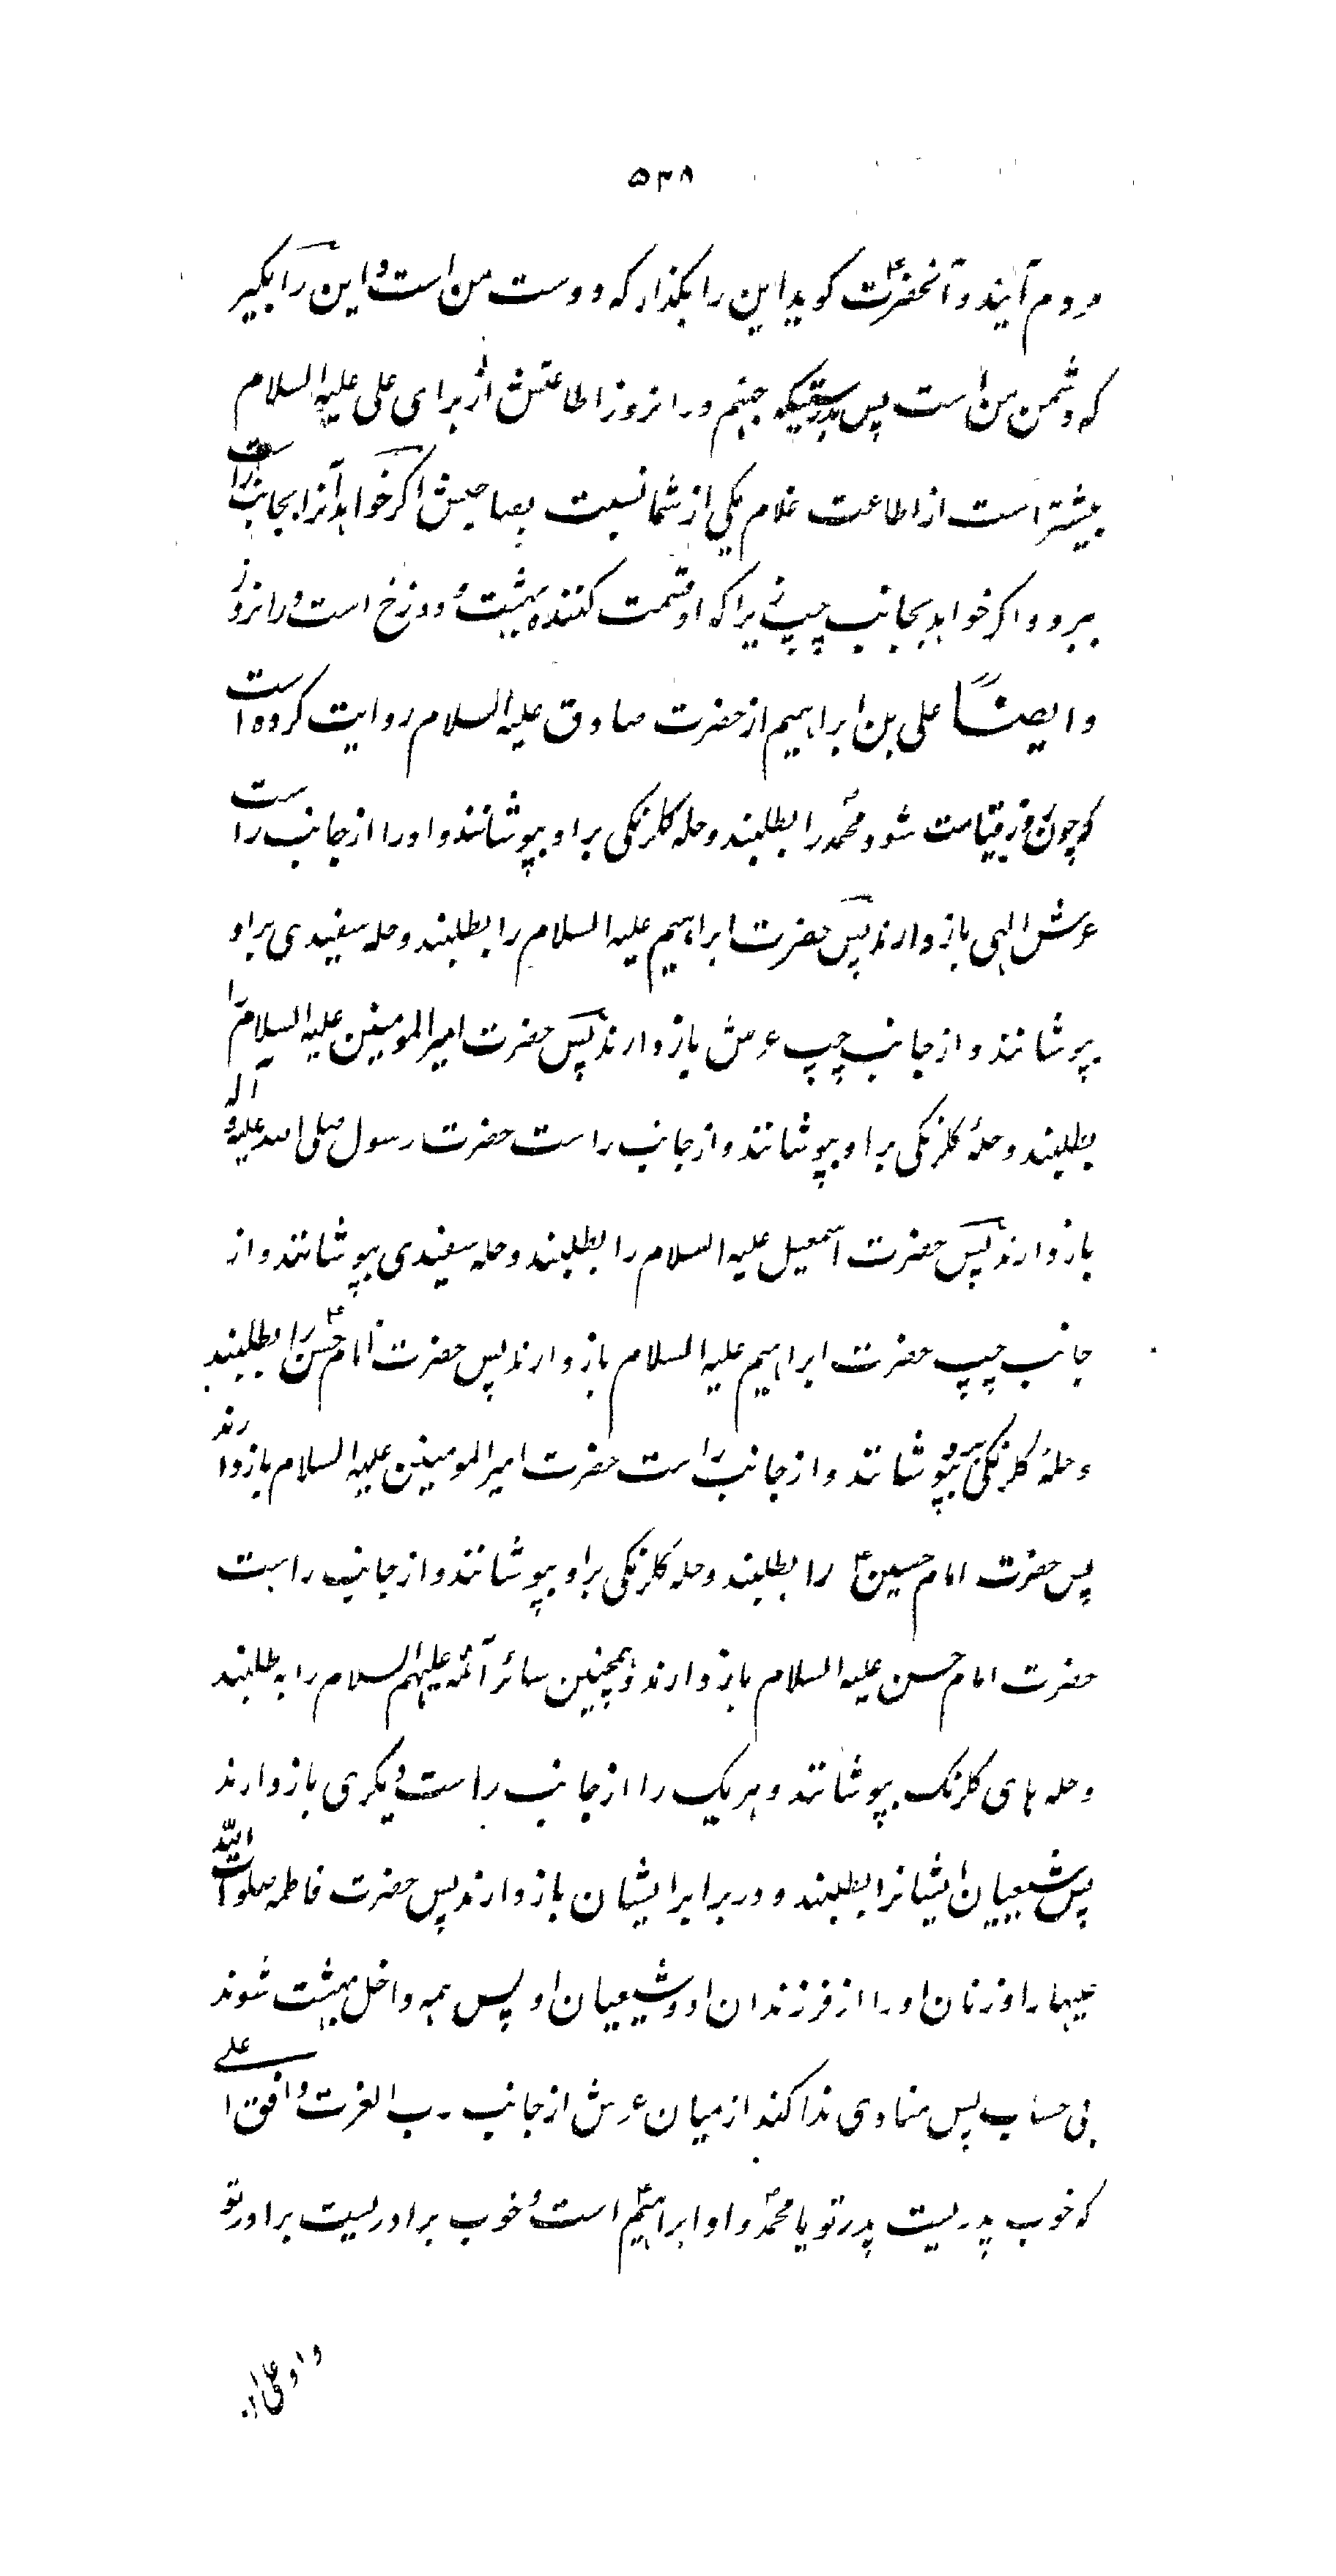 ۵۳۸
مردم آیند و آنحضرتؑ کوید این را بکذار که دوست من است و این را بکیر
که دشمن من است پس بدرستیکه جهنم در انروز اطاعتش از برای علی علیه السلام
بیشتر است از اطاعت غلام یکی از شما نسبت بصاحبش اکر خواهد آنرا بجانب راست
ببرد و اکر خواهد بجانب چپ زیرا که او قسمت کننده بهشت و دوزخ است در انروز
و ایضاً علی بن ابراهیم از حضرت صادق علیه السلام روایت کرده است
که چون روز قیامت شود محمد را بطلبند و حله کلرنکی بر او بپوشانند و او را از جانب راست
عرش الهی بازدارند پس حضرت ابراهیم علیه السلام را بطلبند و حله سفیدی بر او
بپوشانند و از جانب چپ عرش بازدارند پس حضرت امیر المومنین علیه السلام را
بطلبند و حلهٔ کلرنکی بر او بپوشانند و از جانب راست حضرت رسول صلی الله علیه و آله
بازدارند پس حضرت اسمعیل علیه السلام را بطلبند و حله سفیدی بپوشانند و از
جانب چپ حضرت ابراهیم علیه السلام بازدارند پس حضرت امام حسنؑ را بطلبند
و حلهٔ کلرنکی برو بپوشانند و از جانب راست حضرت امیر المومنین علیه السلام بازدارند
پس حضرت امام حسینؑ را بطلبند و حله کلرنکی بر او بپوشانند و از جانب راست
حضرت امام حسن علیه السلام بازدارند و همچنین سائر آئمه علیهم السلام را به طلبند
و حله های کلرنک بپوشانند و هر یک را از جانب راست دیکری بازدارند
پس شیعیان ایشانرا بطلبند و در برابر ایشان بازدارند پس حضرت فاطمه صلوات الله
علیها را و زنان او را از فرزندان او و شیعیان او پس همه داخل بهشت شوند
بی حساب پس منادی ندا کند از میان عرش از جانب رب العزت و افق اعلے
که خوب پدریست پدر تو یا محمدؐ و او ابراهیمؑ است و خوب برادریست برادر تو
و او علی